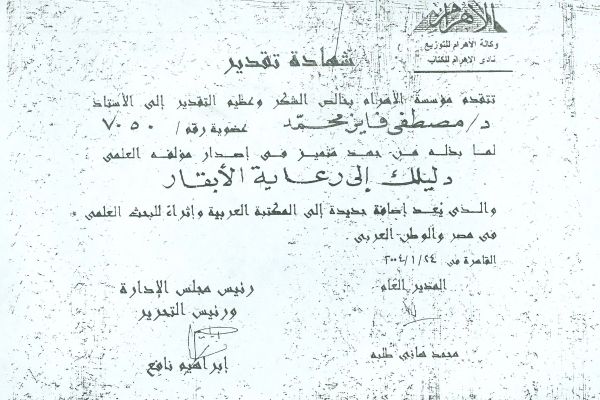 الأهرام
وكالة الأهرام للتوزيع
نادى الأهرام للكتاب
شهادة تقدير
تتقدم مؤسسة الأهرام بخالص الشكر وعظيم التقدير إلى الأستاذ
د/ مصطفى فايز محمد عضوية رقم / ٧٠٥٠
لما بذله من جهد متميز فى إصدار مؤلفه العلمى :
دليلك إلى رعاية الأبقار
والذى يُعد إضافة جديدة إلى المكتبة العربية وإثراءً للبحث العلمى
فى مصر والوطن العربى .
القاهرة فى ٢٠٠٤/١/٢٤
المدير العام
رئيس مجلس الإدارة
ورئيس التحرير
محمد هانى طلبه
إبراهيم نافع